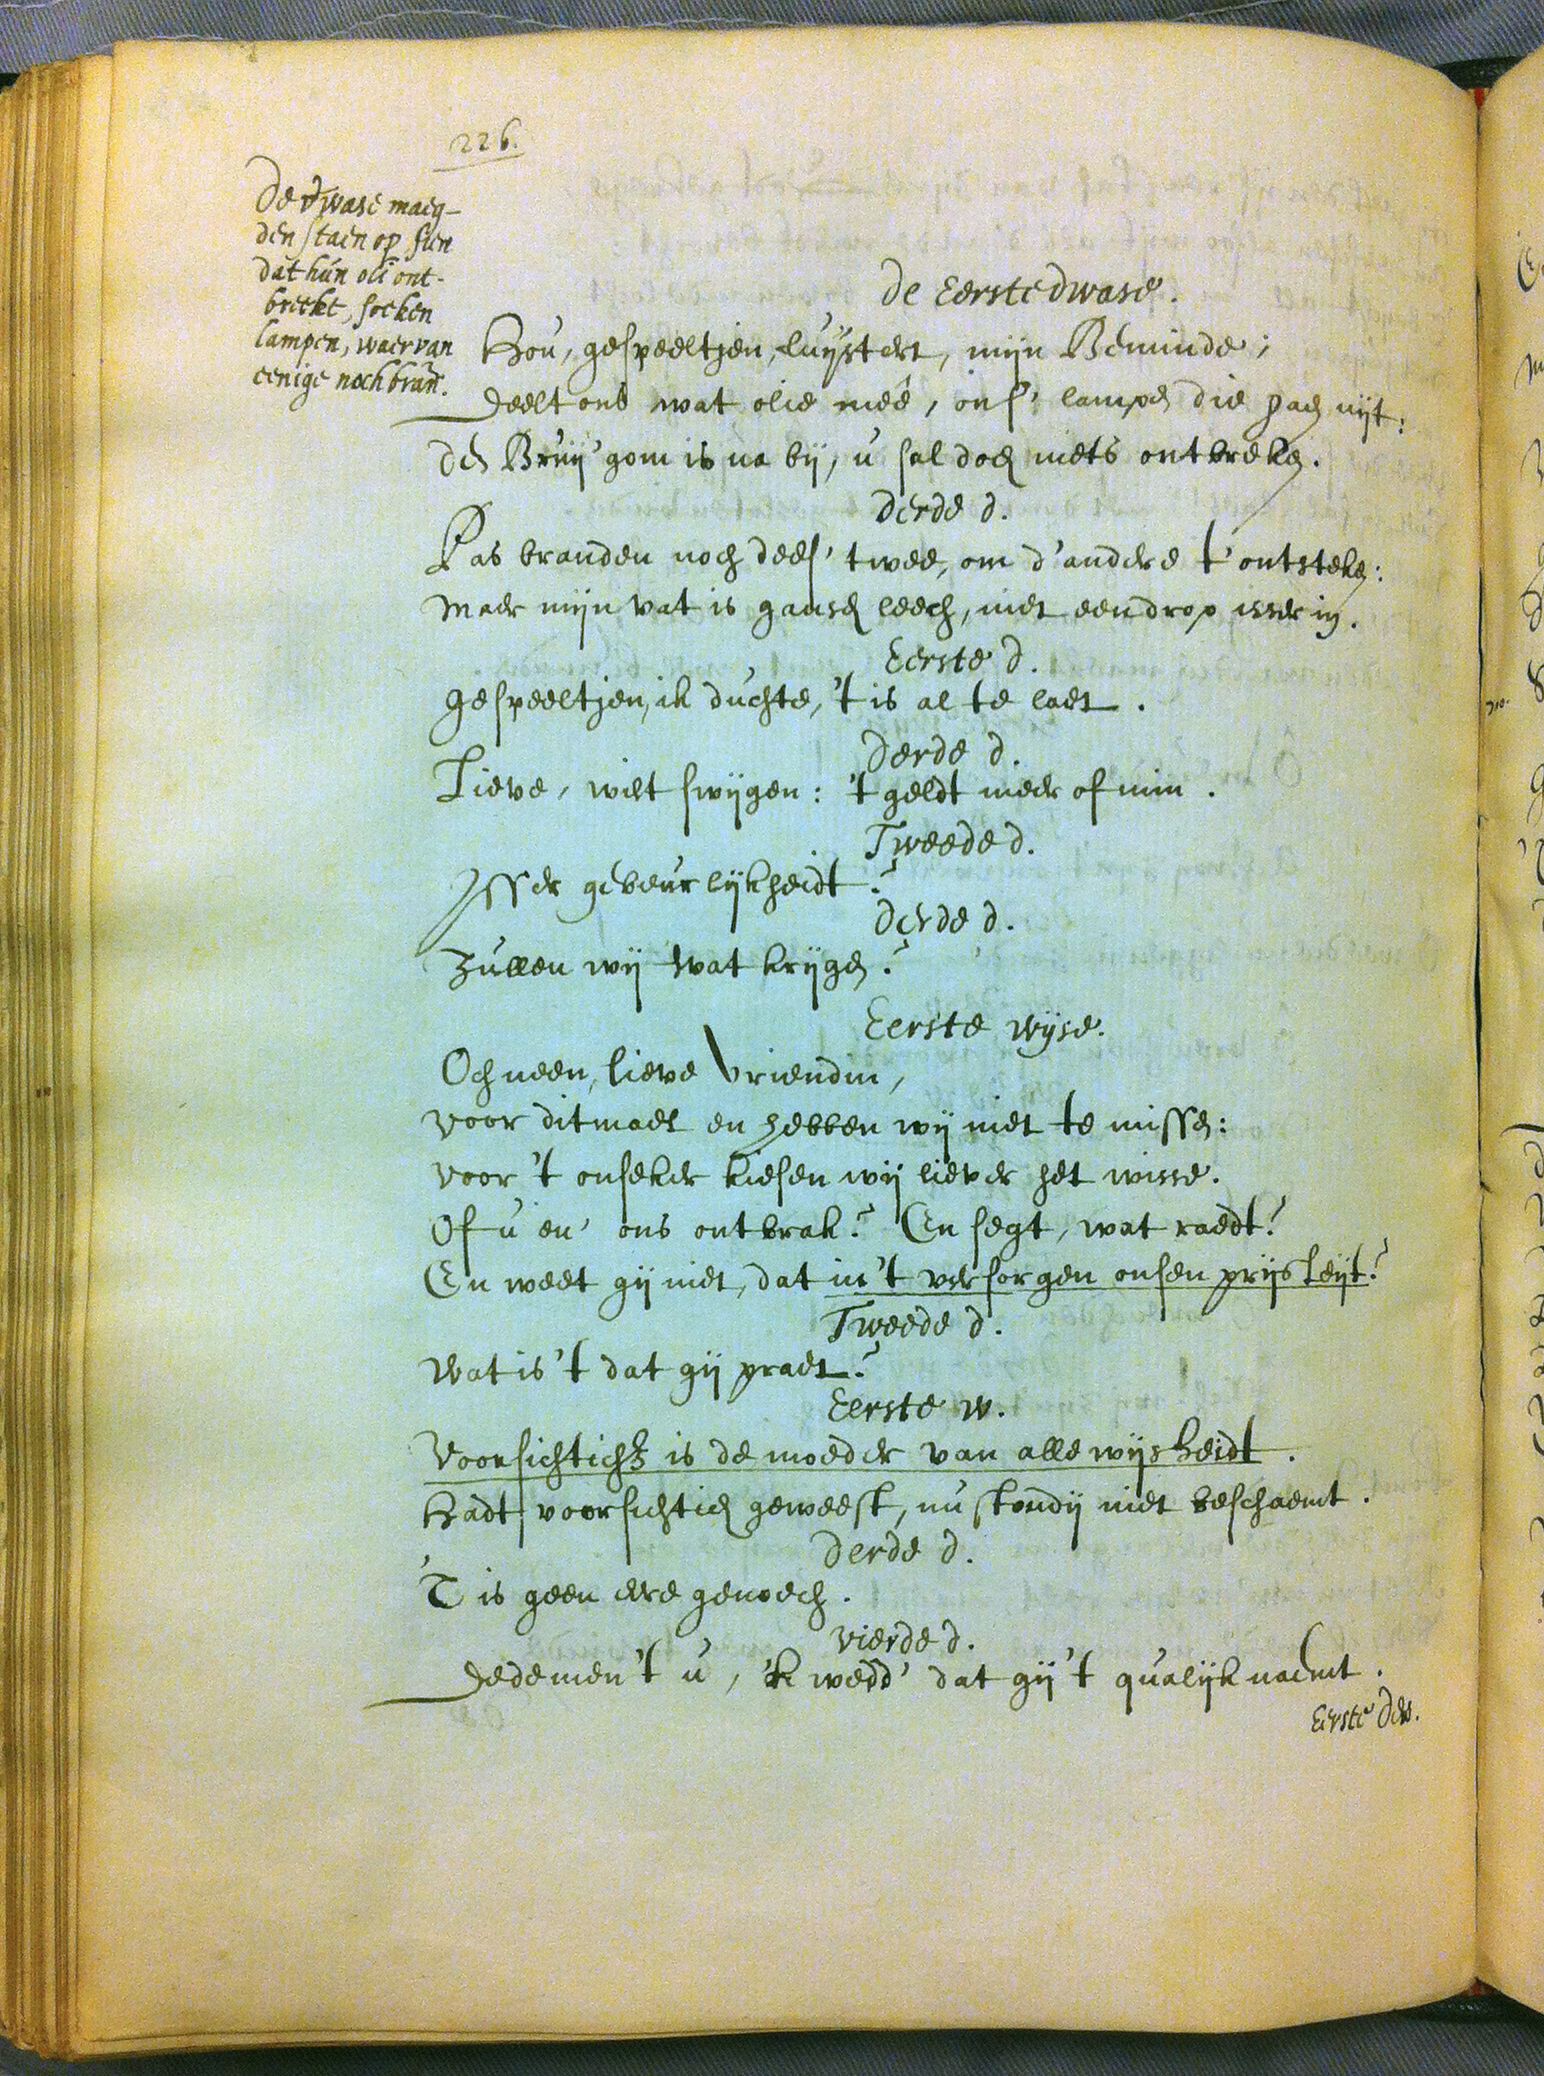 226.
De dwase maeg-
den staen op sien
dat hún oli ont-
breekt, soeken
lampen, waer van
eenige noch bran̄.
De Eerste dwase.
Hou, gespeeltjen, luÿstert, mijn Beminde;
Deelt ons wat olie meê, ons' lampen die gaen uijt:
Den Bruij'gom is na bij, u sal doch niets ontbreken.
Derde d.
Pas branden noch dees' twee, om d'andere t'ontsteken:
Maer mijn vat is gansch leech, niet een drop isser in.
Eerste d.
Gespeeltjen, ik duchte, 't is al te laet.
Derde d.
Lieve, wilt swijgen: 't geldt meer of min.
Tweede d.
Isser gebeurlijkheidt?
Derde d.
Zullen wij wat krijgen?
Eerste wijse.
Och neen, lieve Vriendin,
Voor ditmael en hebben wij niet te missen:
Voor 't onseker kiesen wij liever het wisse.
Of u en' ons ontbrak? En segt, wat raedt?
En weet gij niet, dat in 't versorgen onsen prijs leijt?
Tweede d.
Wat is 't dat gij praet?
Eerste w.
Voorsichtich[t] is de moeder van alle wijsheidt.
Hadt voorsichtich geweest, nu stondij niet beschaemt.
Derde d.
'T is geen eere genoech.
Vierde d.
Dede men 't u, 'k wedd' dat gij 't qualijk naemt.
Eerste